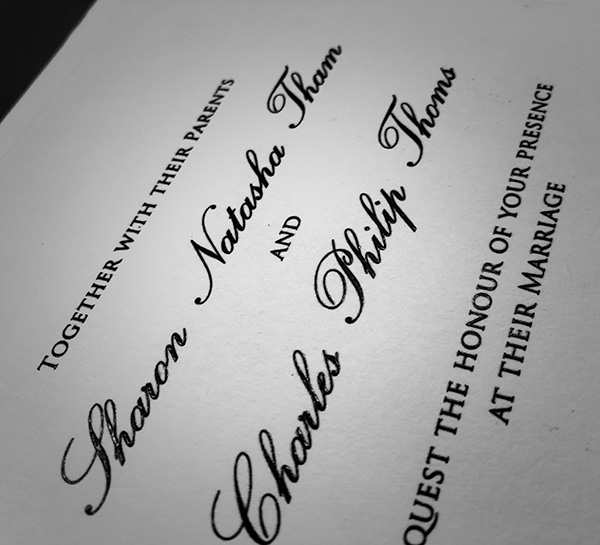 TOGETHER WITH THEIR PARENTS
Sharon Natasha Tham
AND
Charles Philip Thoms
QUEST THE HONOUR OF YOUR PRESENCE
AT THEIR MARRIAGE